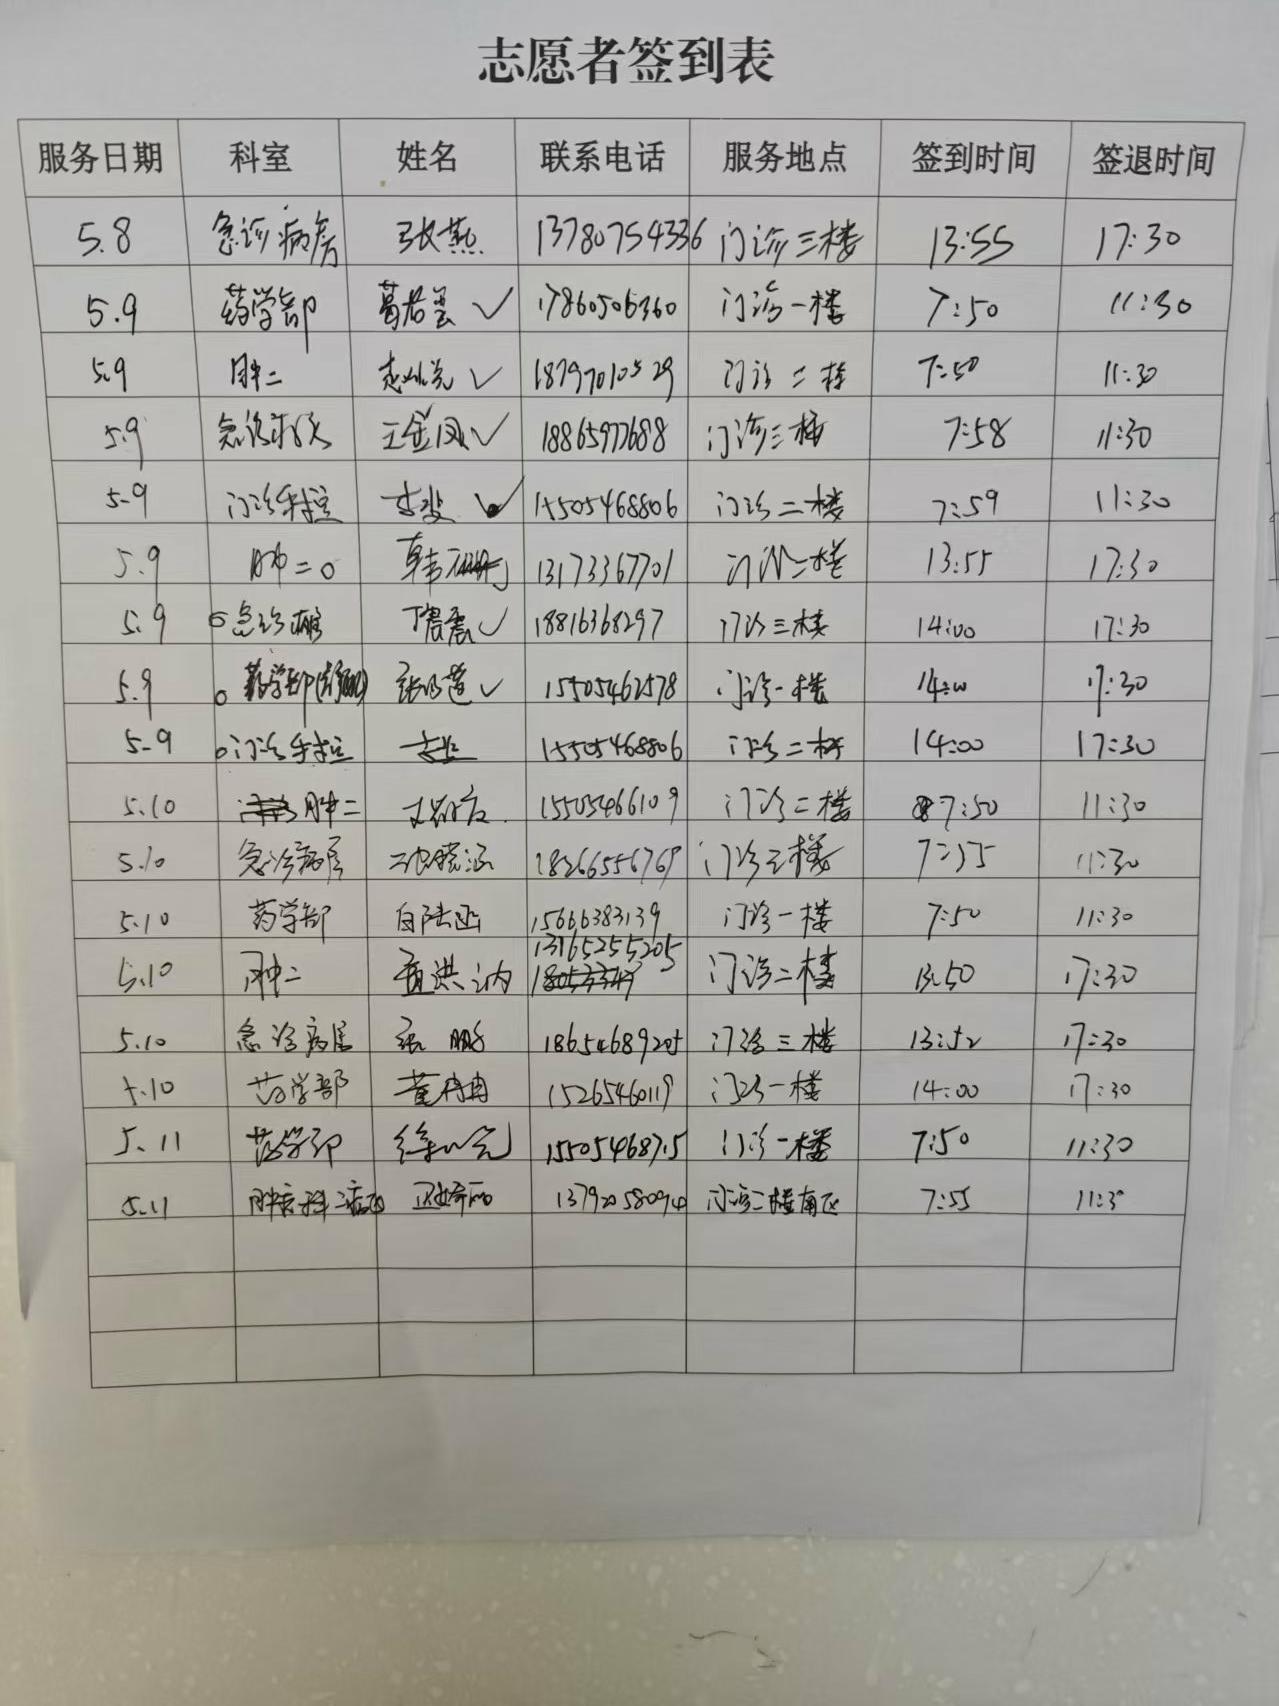 志愿者签到表
服务日期 科室 姓名 联系电话 服务地点 签到时间 签退时间
5.8 急诊病房 张燕 13780754336 门诊三楼 13:55 17:30
5.9 药学部 葛君云 ✓ 17860506360 门诊一楼 7:50 11:30
5.9 肿二 ✓ 18797010529 门诊二楼 7:50 11:30
5.9 急诊病房 王金凤 ✓ 18865977688 门诊三楼 7:58 11:30
5.9 门诊手拉 ✓ 15505468806 门诊二楼 7:59 11:30
5.9 肿二 13173367701 门诊二楼 13:55 17:30
5.9 急诊病房 丁震震 ✓ 18816368297 门诊三楼 14:00 17:30
5.9 药学部 ✓ 15505462578 门诊一楼 14:00 17:30
5.9 门诊手拉 15505468806 门诊二楼 14:00 17:30
5.10 肿二 15505466109 门诊二楼 7:50 11:30
5.10 急诊病房 18266556769 门诊三楼 7:55 11:30
5.10 药学部 15666383139 门诊一楼 7:50 11:30
5.10 肿二 13165255205 门诊二楼 13:50 17:30
5.10 急诊病房 张鹏 18654689205 门诊三楼 13:52 17:30
5.10 药学部 董冉冉 15265460119 门诊一楼 14:00 17:30
5.11 药学部 15505468715 门诊一楼 7:50 11:30
5.11 肿瘤科二病区 13792058094 门诊二楼南区 7:55 11:30